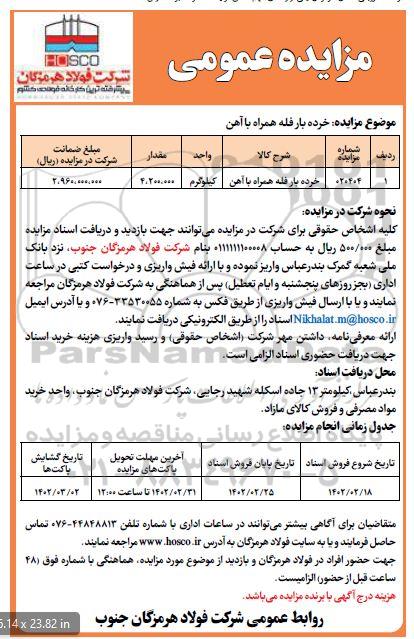 مزایده عمومی
HOSCO
شرکت فولاد هرمزگان
پیشرفته ترین کارخانه فولادی کشور
HORMOZGAN STEEL COMPANY
موضوع مزایده: خرده بار فله همراه با آهن
ردیف شماره مزایده شرح کالا واحد مقدار مبلغ ضمانت شرکت در مزایده (ریال)
۱ ۰۲۰۴۰۴ خرده بار فله همراه با آهن کیلوگرم ۴.۲۰۰.۰۰۰ ۲.۹۶۰.۰۰۰.۰۰۰
نحوه شرکت در مزایده:
کلیه اشخاص حقوقی برای شرکت در مزایده می‌توانند جهت بازدید و دریافت اسناد مزایده
مبلغ ۵۰۰/۰۰۰ ریال به حساب ۰۱۱۱۱۱۱۱۰۰۰۰۸ بنام شرکت فولاد هرمزگان جنوب، نزد بانک
ملی شعبه گمرک بندرعباس واریز نموده و با ارائه فیش واریزی و درخواست کتبی در ساعات
اداری (بجز روزهای پنجشنبه و ایام تعطیل) پس از هماهنگی به شرکت فولاد هرمزگان مراجعه
نمایند و یا با ارسال فیش واریزی از طریق فکس به شماره ۳۳۵۳۰۰۵۵-۰۷۶ و یا آدرس ایمیل
Nikhalat.m@hosco.ir اسناد را از طریق الکترونیکی دریافت نمایند.
ارائه معرفی‌نامه، داشتن مهر شرکت (اشخاص حقوقی) و رسید واریزی هزینه خرید اسناد
جهت دریافت حضوری اسناد الزامی است.
محل دریافت اسناد:
بندرعباس کیلومتر ۱۳ جاده اسکله شهید رجایی، شرکت فولاد هرمزگان جنوب، واحد خرید
مواد مصرفی و فروش کالای مازاد.
جدول زمانی انجام مزایده:
تاریخ شروع فروش اسناد تاریخ پایان فروش اسناد آخرین مهلت تحویل پاکت‌های مزایده تاریخ گشایش پاکت‌ها
۱۴۰۲/۰۲/۱۸ ۱۴۰۲/۰۲/۲۵ ۱۴۰۲/۰۲/۳۱ تا ساعت ۱۲:۰۰ ۱۴۰۲/۰۳/۰۲
متقاضیان برای آگاهی بیشتر می‌توانند در ساعات اداری با شماره تلفن ۴۴۸۴۸۸۱۳-۰۷۶ تماس
حاصل فرمایند و یا به سایت فولاد هرمزگان به آدرس www.hosco.ir مراجعه نمایند.
جهت حضور افراد در فولاد هرمزگان و بازدید از موضوع مورد مزایده، هماهنگی با شماره فوق (۴۸
ساعت قبل از حضور) الزامیست.
هزینه درج آگهی با برنده مزایده می‌باشد.
روابط عمومی شرکت فولاد هرمزگان جنوب
6.14 x 23.82 in